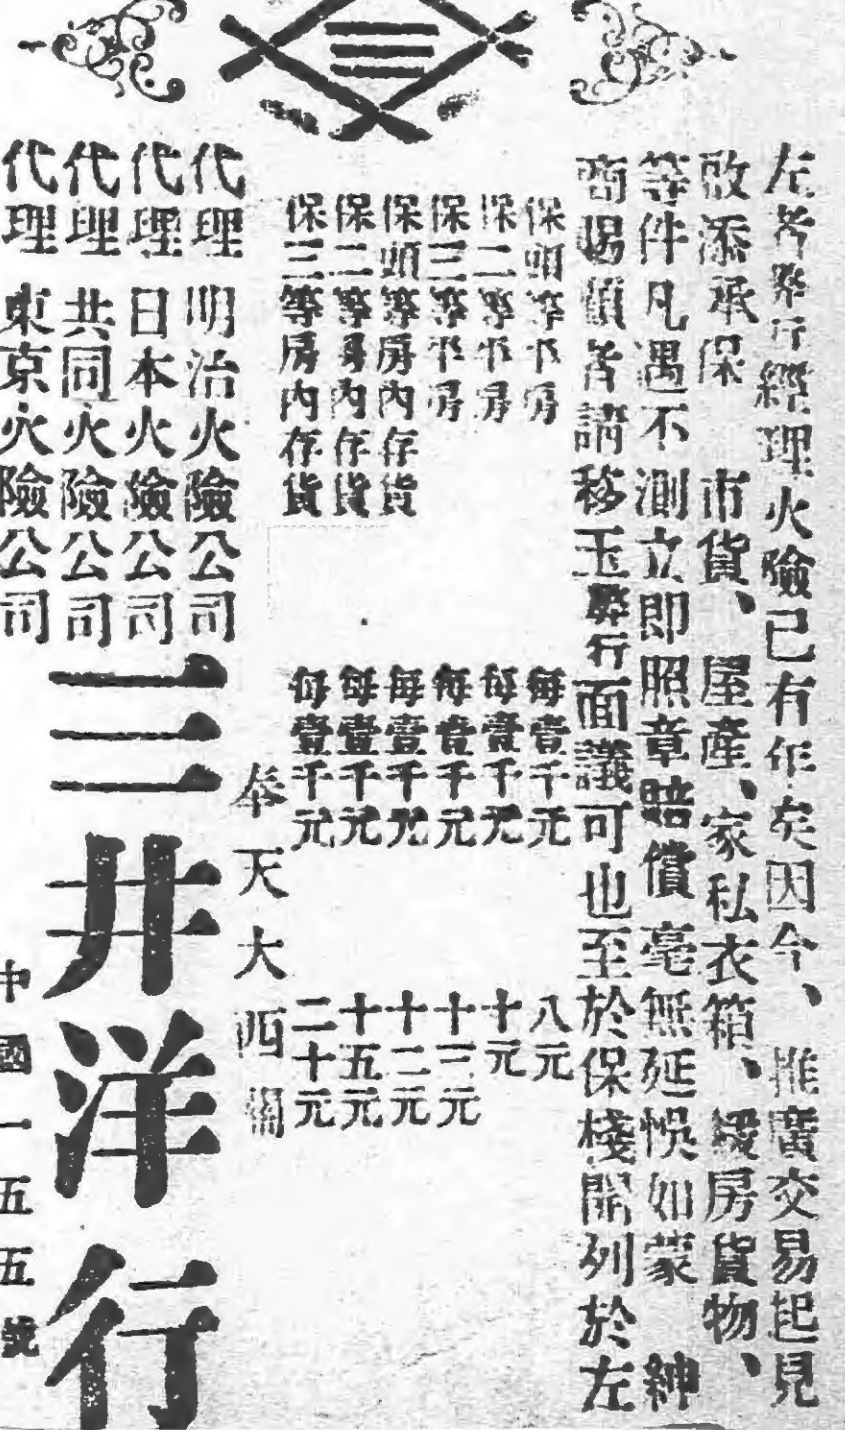 左者弊行經理火險已有年矣因今、推廣交易起見
改添承保 市貨、屋產、家私衣箱、緩房貨物、
等件凡遇不測立即照章賠償毫無延悞如蒙 紳
商賜顧者請移玉弊行面議可也至於保棧開列於左
保頭等市房 每壹千元 八元
保二等市房 每壹千元 十元
保三等市房 每壹千元 十三元
保頭等房內存貨 每壹千元 十二元
保二等房內存貨 每壹千元 十五元
保三等房內存貨 每壹千元 二十元
奉天大西關
代理 明治火險公司
代理 日本火險公司
代理 共同火險公司
代理 東京火險公司
三井洋行
中國一五五號